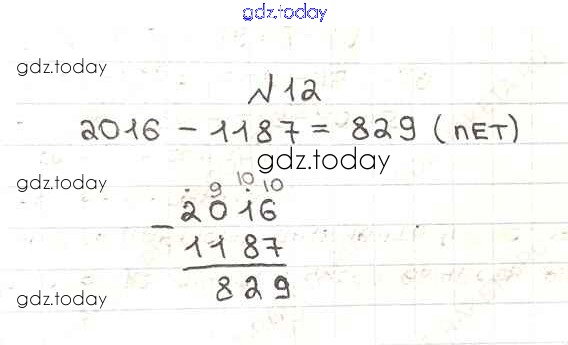 gdz.today
gdz.today
№12
2016 - 1187 = 829 (лет)
gdz.today
gdz.today
9 10 10
- 2016
1187
829
gdz.today